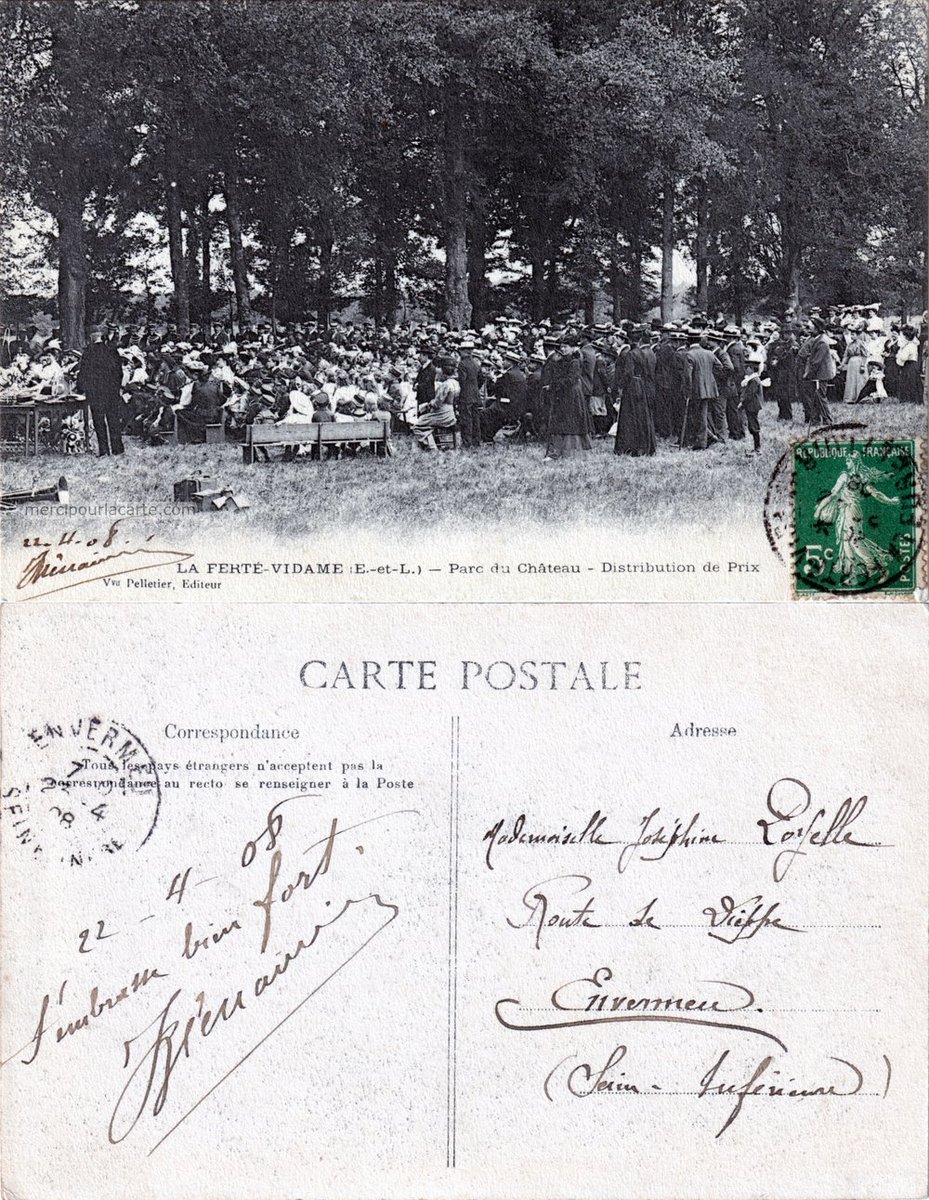 mercipourlacarte.com
22-4-08.
LA FERTÉ-VIDAME (E.-et-L.) — Parc du Château - Distribution de Prix
Vve Pelletier, Editeur
REPUBLIQUE FRANÇAISE
5c
POSTES
CARTE POSTALE
Correspondance
Tous les pays étrangers n'acceptent pas la
correspondance au recto se renseigner à la Poste
ENVERMEU
22-4-08
T'embrasse bien fort.
Adresse
Mademoiselle Joséphine Loyelle
Route de Dieppe
Envermeu.
(Seine-Inférieure)